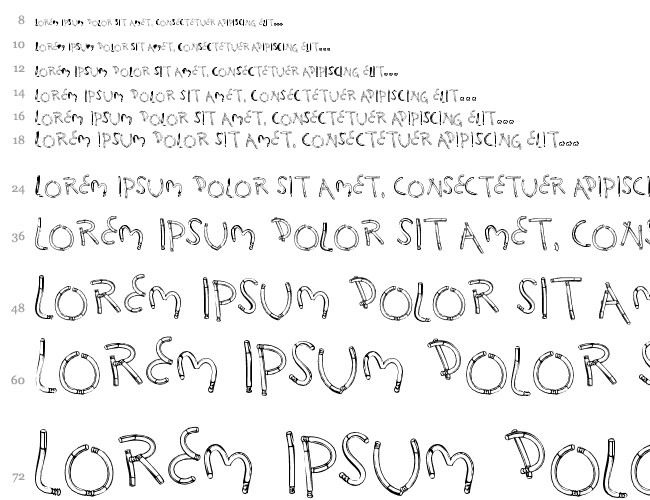 8 LOREM IPSUM DOLOR SIT AMET, CONSECTETUER ADIPISCING ELIT...
10 LOREM IPSUM DOLOR SIT AMET, CONSECTETUER ADIPISCING ELIT...
12 LOREM IPSUM DOLOR SIT AMET, CONSECTETUER ADIPISCING ELIT...
14 LOREM IPSUM DOLOR SIT AMET, CONSECTETUER ADIPISCING ELIT...
16 LOREM IPSUM DOLOR SIT AMET, CONSECTETUER ADIPISCING ELIT...
18 LOREM IPSUM DOLOR SIT AMET, CONSECTETUER ADIPISCING ELIT...
24 LOREM IPSUM DOLOR SIT AMET, CONSECTETUER ADIPISCI
36 LOREM IPSUM DOLOR SIT AMET, CONS
48 LOREM IPSUM DOLOR SIT AM
60 LOREM IPSUM DOLOR S
72 LOREM IPSUM DOLO